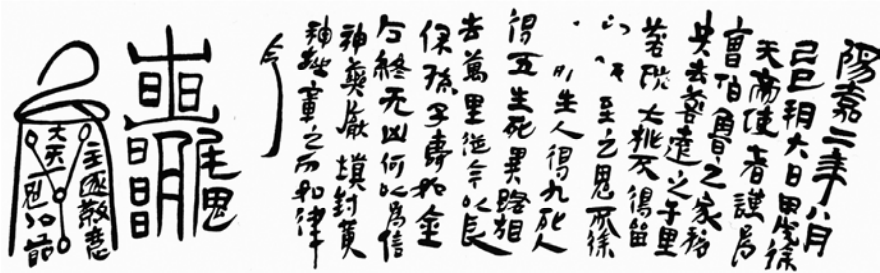 陽嘉二年八月
己巳朔六日甲戌徐
天帝使者謹為
曹伯魯之家移
央去咎遠之千里
咎大桃不得留
至之鬼所徐
生人得九死人
得五生死異路相
去萬里從今以長
保孫子壽如金
石終无凶何以為信
神藥厭填封黃
神越章之而如律
令
主逐敓惡
大天一
鬼以節